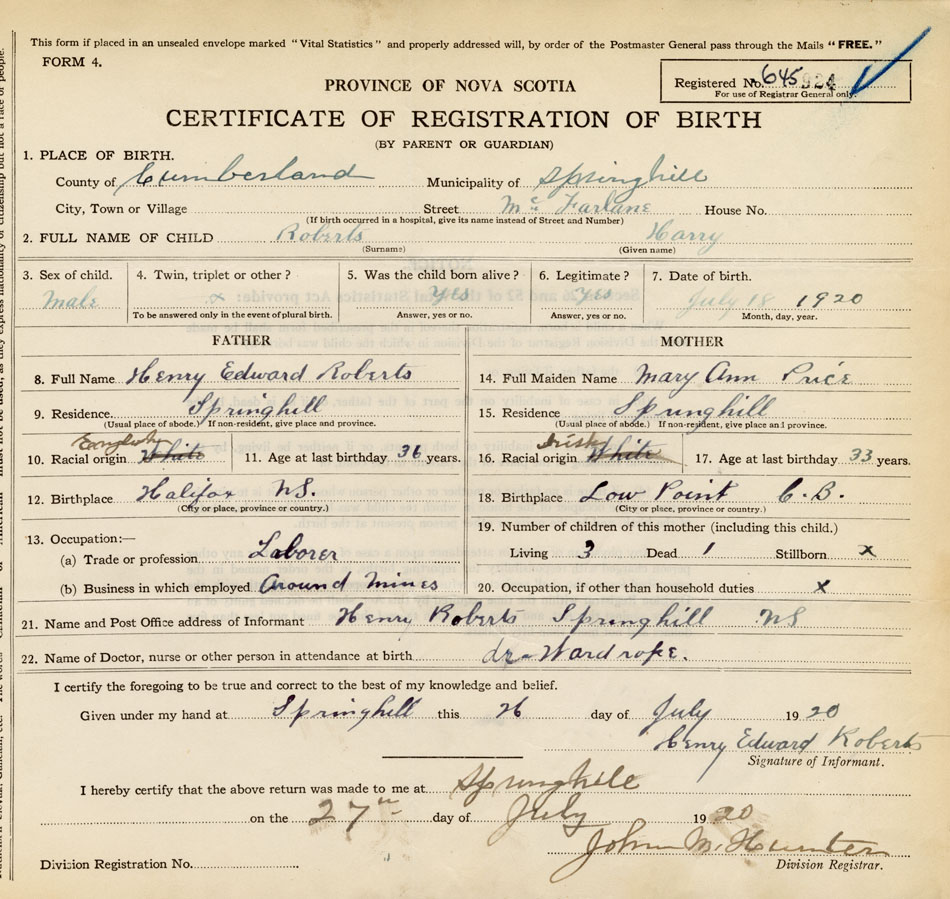 This form if placed in an unsealed envelope marked "Vital Statistics" and properly addressed will, by order of the Postmaster General pass through the Mails "FREE."
FORM 4.
Registered No. 645 924
For use of Registrar General only.
PROVINCE OF NOVA SCOTIA
CERTIFICATE OF REGISTRATION OF BIRTH
(BY PARENT OR GUARDIAN)
1. PLACE OF BIRTH.
County of Cumberland Municipality of Springhill
City, Town or Village Street Mc Farlane House No.
(If birth occurred in a hospital, give its name instead of Street and Number)
2. FULL NAME OF CHILD Roberts Harry
(Surname) (Given name)
3. Sex of child. 4. Twin, triplet or other? 5. Was the child born alive? 6. Legitimate? 7. Date of birth.
Male x Yes Yes July 18 1920
To be answered only in the event of plural birth. Answer, yes or no. Answer, yes or no. Month, day, year.
FATHER MOTHER
8. Full Name Henry Edward Roberts 14. Full Maiden Name Mary Ann Price
9. Residence. Springhill 15. Residence Springhill
(Usual place of abode.) If non-resident, give place and province. (Usual place of abode.) If non-resident, give place and province.
English Irish
10. Racial origin White 11. Age at last birthday 36 years. 16. Racial origin White 17. Age at last birthday 33 years.
12. Birthplace Halifax NS. 18. Birthplace Low Point C.B.
(City or place, province or country.) (City or place, province or country.)
13. Occupation:— 19. Number of children of this mother (including this child.)
(a) Trade or profession Laborer Living 3 Dead 1 Stillborn x
(b) Business in which employed Around Mines 20. Occupation, if other than household duties x
21. Name and Post Office address of Informant Henry Roberts Springhill NS
22. Name of Doctor, nurse or other person in attendance at birth dr Wardrope.
I certify the foregoing to be true and correct to the best of my knowledge and belief.
Given under my hand at Springhill this 26 day of July 1920
Henry Edward Roberts
Signature of Informant.
I hereby certify that the above return was made to me at Springhill
on the 27th day of July 1920
John M. Hunter
Division Registration No. Division Registrar.